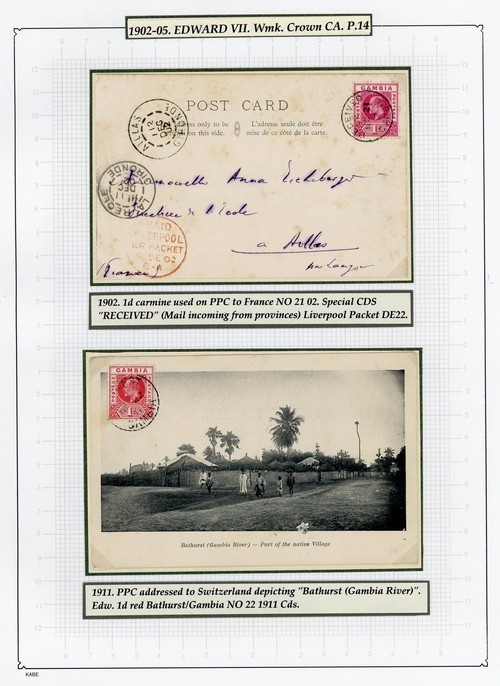 1902-05. EDWARD VII. Wmk. Crown CA. P.14
POST CARD
only to be
on this side.
L'adresse seule doit être
mise de ce côté de la carte.
GAMBIA
POSTAGE
RECEIVED
AILLAS
GIRONDE
LA REOLE
GIRONDE
DEC
PAID
LIVERPOOL
BR PACKET
DE 02
Anna
à Aillas
1902. 1d carmine used on PPC to France NO 21 02. Special CDS
"RECEIVED" (Mail incoming from provinces) Liverpool Packet DE22.
GAMBIA
POSTAGE
GAMBIA
Bathurst (Gambia River) — Part of the native Village
1911. PPC addressed to Switzerland depicting "Bathurst (Gambia River)".
Edw. 1d red Bathurst/Gambia NO 22 1911 Cds.
KABE